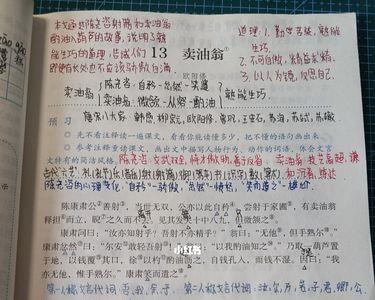 本文通过陈尧咨射箭和卖油翁
酌油入葫芦的故事，说明了熟
能生巧的道理，告诫人们
即使有长处也不应该骄傲自满。
道理：1. 勤学苦练，熟能
生巧。
2. 不可自傲，精益求精。
3. 以人为镜，反思自己。
13 卖油翁①
欧阳修
卖油翁
陈尧咨：自矜-忿然-笑遣
卖油翁：微颔-从容-酌油
熟能生巧
唐宋八大家：韩愈，柳宗元，欧阳修，曾巩，王安石，苏洵，苏轼，苏辙
预习
◎ 先不看注释读一遍课文，看看你能读懂多少，把不懂的语句画出来。
◎ 参考注释重读课文，画出文中描写人物行为、动作的词语，体会文言
文特有的简洁风格。
陈康肃公善射②，当世无双，公亦以此自矜③。尝射于家圃④，有卖油翁
释担而立，睨之久而不去。见其发矢十中八九，但微颔之。
康肃问曰：“汝亦知射乎？吾射不亦精乎？”翁曰：“无他，但手熟尔。”
康肃忿然曰：“尔安敢轻吾射！”翁曰：“以我酌油知之。”乃取一葫芦置
于地，以钱覆其口，徐以杓酌油沥之，自钱孔入，而钱不湿。因曰：“我
亦无他，惟手熟尔。”康肃笑而遣之。
小红书